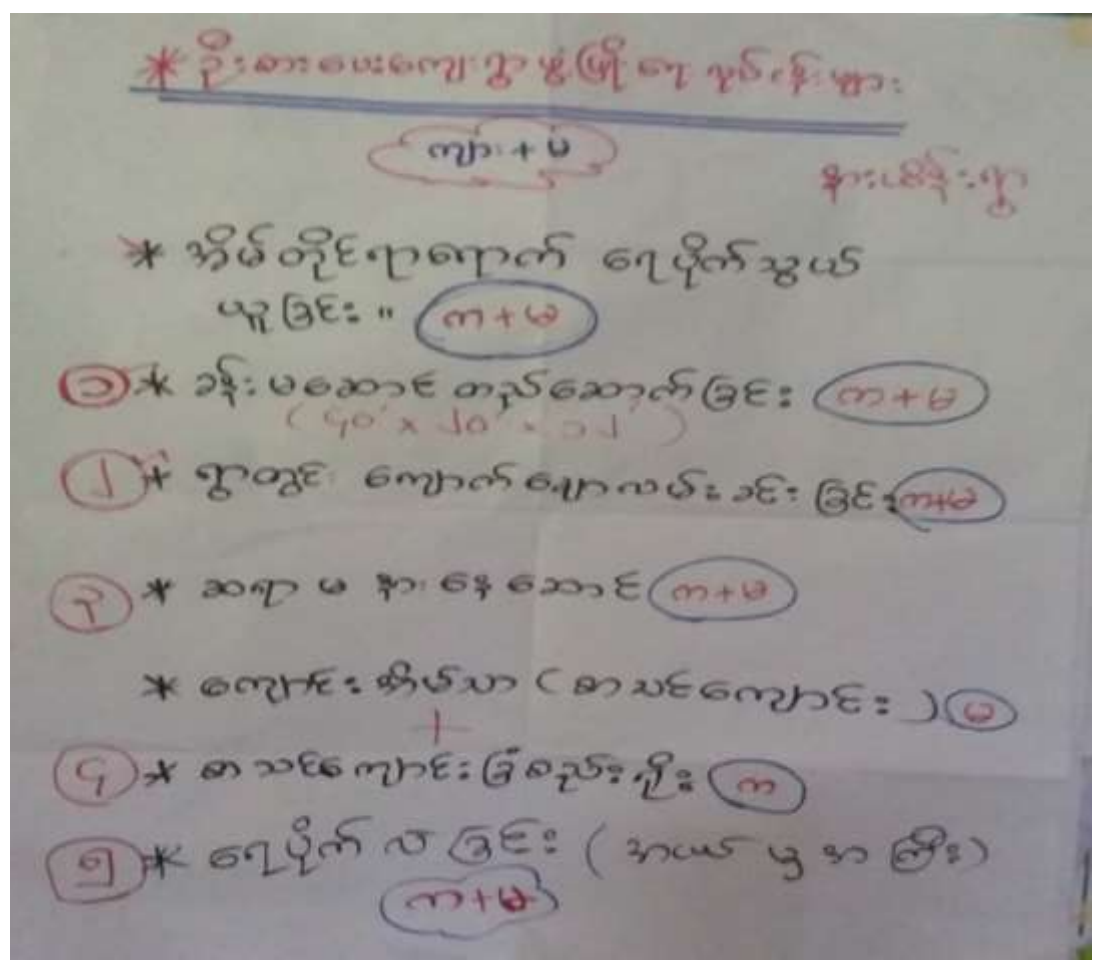 * ဦးစားပေးကျေးရွာဖွံ့ဖြိုးရေး လုပ်ငန်းများ
ကျား + မ
နားပိန်းရွာ
* အိမ်တိုင်ရာရောက် ရေပိုက်သွယ်
ယူခြင်း။ က + မ
၁ * ခန်းမဆောင် တည်ဆောက်ခြင်း က + မ
၂ * ရွာတွင်း ကျောက်ချောလမ်းခင်းခြင်း က+မ
၃ * ဆရာမ နားနေဆောင် က + မ
* ကျောင်းအိမ်သာ (စာသင်ကျောင်း) မ
+
၄ * စာသင်ကျောင်းခြံစည်းရိုး က
၅ * ရေပိုက်လဲခြင်း (အငယ်မှအကြီး)
က + မ